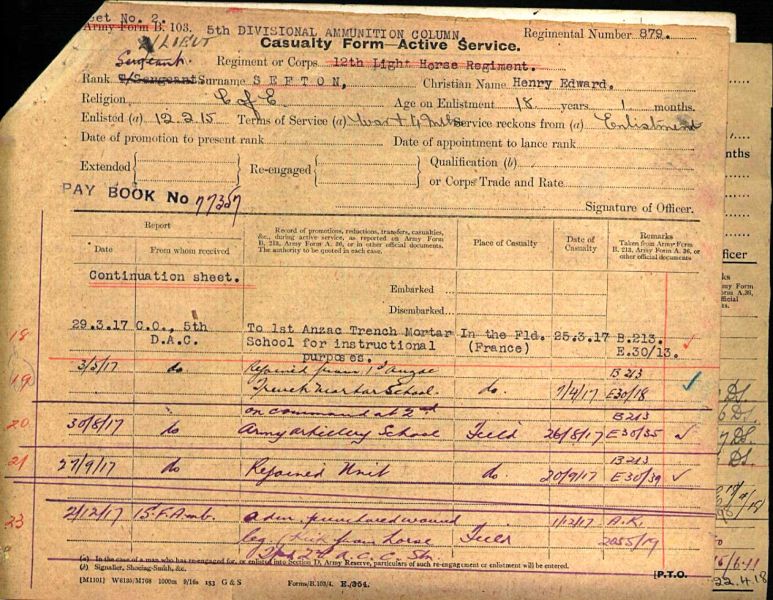 eet No. 2.
Army Form B. 103. 5th DIVISIONAL AMMUNITION COLUMN.
2/LIEUT
Casualty Form—Active Service.
Regimental Number 879.
Sergeant
Regiment or Corps 12th Light Horse Regiment.
Rank T/Sergeant Surname SEFTON, Christian Name Henry Edward.
Religion C of E Age on Enlistment 18 years 1 months.
Enlisted (a) 12.2.15 Terms of Service (a) War & 4 mths Service reckons from (a) Enlistment
Date of promotion to present rank Date of appointment to lance rank
Extended Re-engaged Qualification (b)
or Corps Trade and Rate
PAY BOOK No 77357
Signature of Officer.
Report
Date From whom received
Record of promotions, reductions, transfers, casualties, &c., during active service, as reported on Army Form B. 213, Army Form A. 36, or in other official documents. The authority to be quoted in each case.
Place of Casualty
Date of Casualty
Remarks Taken from Army Form B. 213, Army Form A. 36, or other official documents
Continuation sheet.
Embarked
Disembarked
18 29.3.17 C.O., 5th D.A.C. To 1st Anzac Trench Mortar School for instructional purposes. In the Fld. (France) 25.3.17 B.213. E.30/13.
19 3/5/17 do Rejoined from 1st Anzac Trench Mortar School. do. 7/4/17 B213 E30/18
20 30/8/17 do on command at 2nd Army Artillery School Field 26/8/17 B213 E30/35
21 27/9/17 do Rejoined Unit do. 20/9/17 B213 E30/39
23 2/12/17 15.F.Amb. adm. punctured wound leg (kick from horse Field 1/12/17 A.36. 2055/19
(a) In the case of a man who has re-engaged for, or enlisted into Section D, Army Reserve, particulars of such re-engagement or enlistment will be entered.
(b) Signaller, Shoeing-Smith, &c.
[M1101] W6135/M768 1000m 9/16s 153 G & S Forms/B.103/4. E./354.
[P.T.O.
nths
fficer
ks
my Form
orm A.36,
official
22.4.18